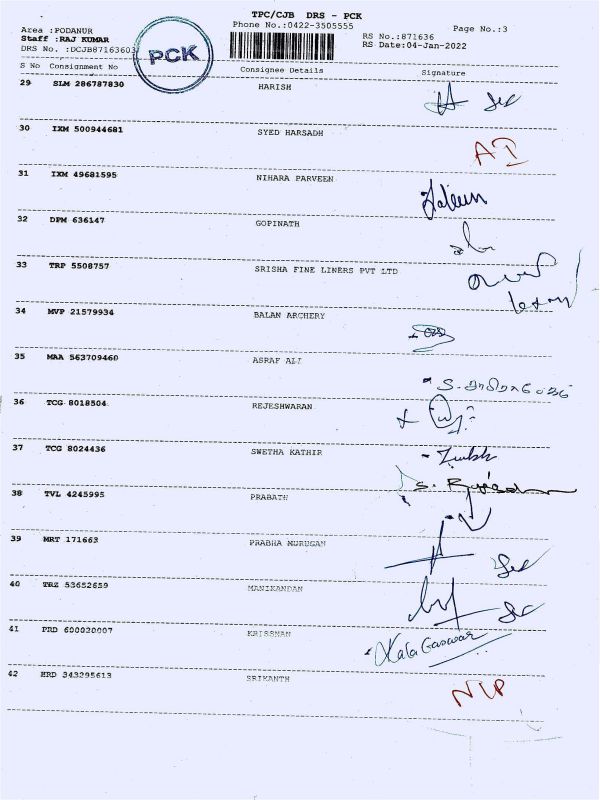 TPC/CJB DRS - PCK
Area :PODANUR
Phone No.:0422-3505555
Page No.:3
Staff :RAJ KUMAR
RS No.:871636
DRS No. :DCJB87163603
RS Date:04-Jan-2022
PCK
S No Consignment No Consignee Details Signature
29 SLM 286787830 HARISH
30 IXM 500944681 SYED HARSADH
31 IXM 49681595 NIHARA PARVEEN
32 DPM 636147 GOPINATH
33 TRP 5508757 SRISHA FINE LINERS PVT LTD
34 MVP 21579934 BALAN ARCHERY
35 MAA 563709460 ASRAF ALI
36 TCG 8018504 REJESHWARAN
37 TCG 8024436 SWETHA KATHIR
38 TVL 4245995 PRABATH
39 MRT 171663 PRABHA MURUGAN
40 TRZ 53652659 MANIKANDAN
41 PRD 600020007 KRISSNAN
42 HRD 343295613 SRIKANTH